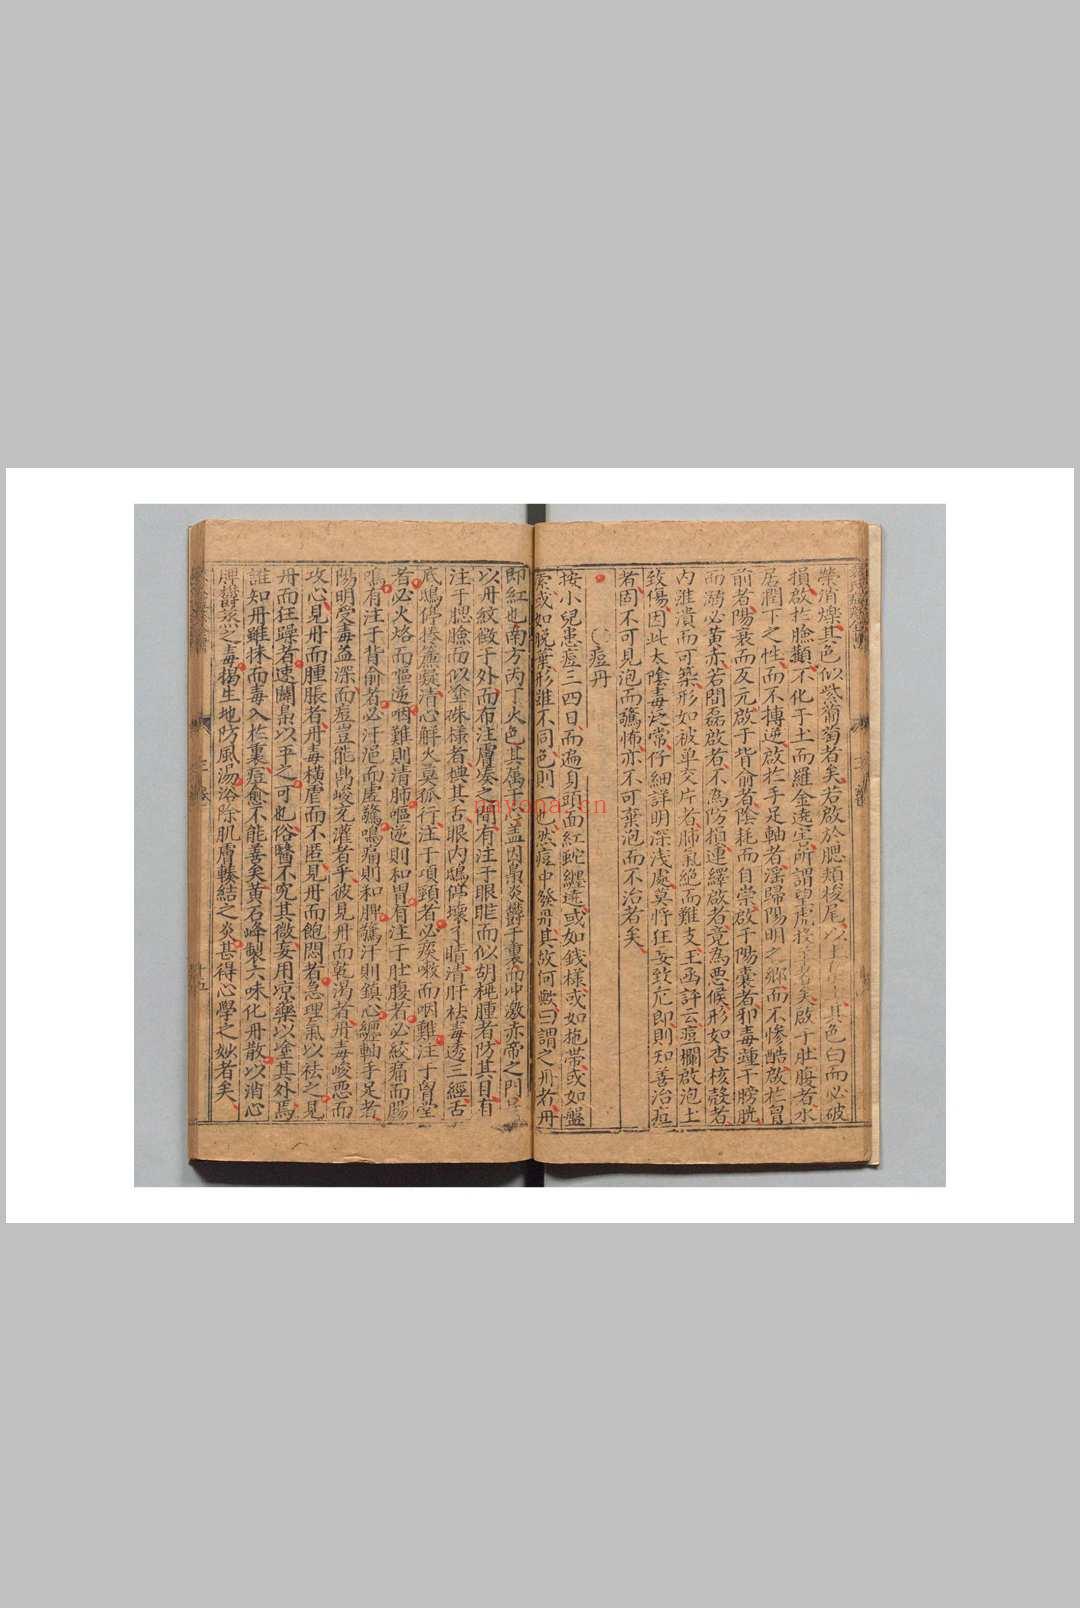 榮消爍其色似紫葡萄者矣若啟於腮頰梭尾以土其色白而必破
損啟於臉顴不化于土而羅金遶宝所謂望虎投者矣啟于肚腹者水
居潤下之性而不搏逆啟於手足軸者淫歸陽明之鄉而不慘酷啟於胷
前者陽衰而反元啟于背俞者陰耗而自崇啟于陽囊者卵毒踵于膀胱
而溺必黃赤若間磊啟者不為防損連繹啟者竟為惡候形如杏核殼者
內進潰而可染形如被单交片者肺氣絕而難支王函評云痘欄啟泡土
致傷因此太陰毒泛常仔細詳明深浅處莫忤狂妄致冗即則知善治痘
者固不可見泡而驚怖亦不可棄泡而不治者矣
痘丹
按小兒患痘三四日而遍身頭面紅蛇纏遶或如錢樣或如拖帶或如盤
索或如脫葉形雖不同色則一也然痘中發丹其故何歟曰謂之丹者丹
即紅也南方丙丁火色其属于心盖因梟炎欝于裏而冲激赤帝之門
以丹紋做于外而布注膚湊之間有注于眼眶而似胡棰腫者防其目有
注于腮臉而似塗硃様者其舌眼内鴟停壞睛清肝祛毒透三經舌
底鴟停捲簾凝清心觧火莫孤行注于項頸者必痰嗽而咽難注于胷堂
者必火烙而嘔逆咽難則清肺嘔逆則和胃有注于肚腹者必絞痛而腸
鳴有注于背俞者必汗浥而虚驚鳴痛則和脾驚汗則鎮心纏軸手足者
陽明受毒盖深而痘豈能齒峻充灌者乎彼見丹而乾渴者丹毒峻惡而
攻心見丹而腫脹者丹毒横虐而不匿見丹而飽悶者急理氣以祛之見
丹而狂躁者速闢梟以平之可也俗醫不究其微妄用凉藥以塗其外焉
誰知丹雖抹而毒入於裏痘愈不能善矣黃石峰製六味化丹散以消心
脾欝蒸之毒揭生地防風湯浴除肌膚輳結之炎甚得心學之妙者矣
十五
nayona.cn